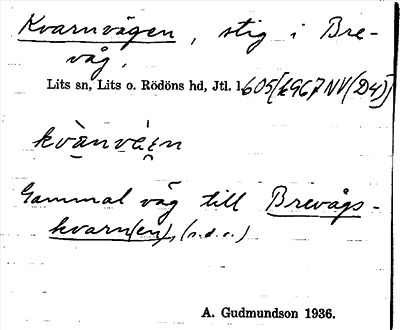 Kvarnvägen, stig i Bre-
våg.
Lits sn, Lits o. Rödöns hd, Jtl. l.605[1967NV(D4)]
kvànvé̱ɛn
Gammal väg till Brevågs-
kvarn(en), (s.d.o.)
A. Gudmundson 1936.